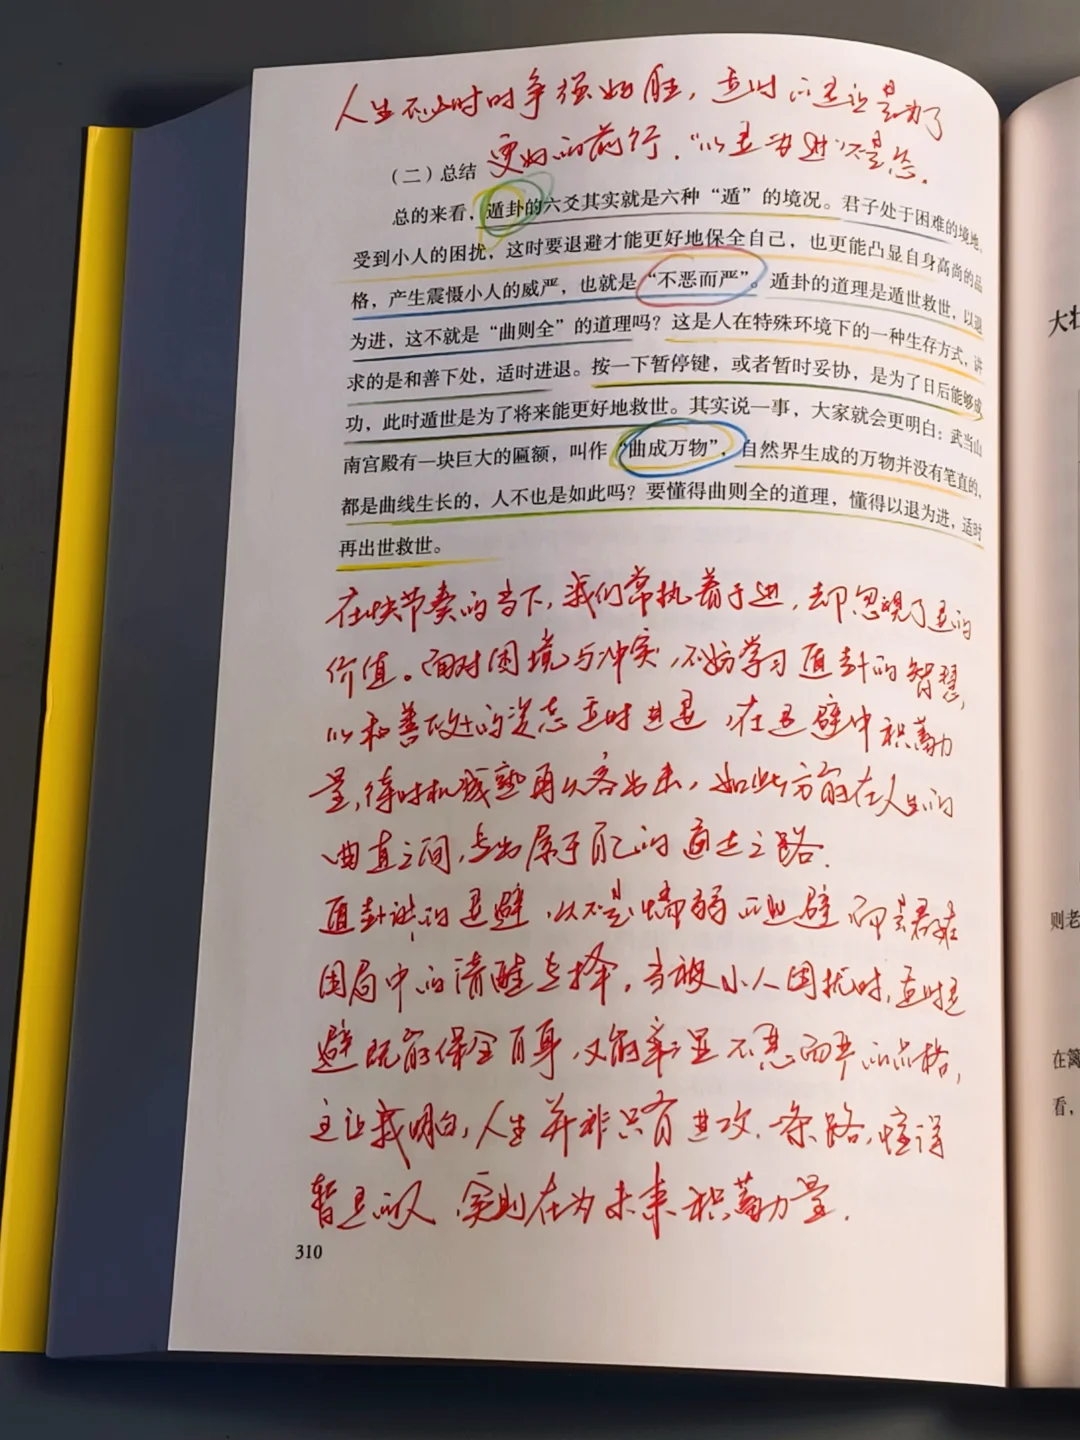 人生不必时时争强好胜，适时的退让是为了
更好的前行。“以退为进”不是怂。
（二）总结
总的来看，遁卦的六爻其实就是六种“遁”的境况。君子处于困难的境地，
受到小人的困扰，这时要退避才能更好地保全自己，也更能凸显自身高尚的品
格，产生震慑小人的威严，也就是“不恶而严”。遁卦的道理是遁世救世，以退
为进，这不就是“曲则全”的道理吗？这是人在特殊环境下的一种生存方式，讲
求的是和善下处，适时进退。按一下暂停键，或者暂时妥协，是为了日后能够成
功，此时遁世是为了将来能更好地救世。其实说一事，大家就会更明白：武当山
南宫殿有一块巨大的匾额，叫作“曲成万物”，自然界生成的万物并没有笔直的，
都是曲线生长的，人不也是如此吗？要懂得曲则全的道理，懂得以退为进，适时
再出世救世。
在快节奏的当下，我们常执着于进，却忽视了退的
价值。面对困境与冲突，不妨学习遁卦的智慧，
以和善的姿态适时进退，在退避中积蓄力
量，待时机成熟再从容出来，如此方能在人生的
曲直之间，走出属于自己的通达之路。
遁卦讲的退避，从不是懦弱的逃避，而是君子在
困局中的清醒选择。当被小人困扰时，适时退
避既能保全自身，又能彰显不恶而严的品格，
这让我明白，人生并非只有进攻一条路，懂得
暂退的人，实则在为未来积蓄力量。
310
大壮
则老
在篱
看，